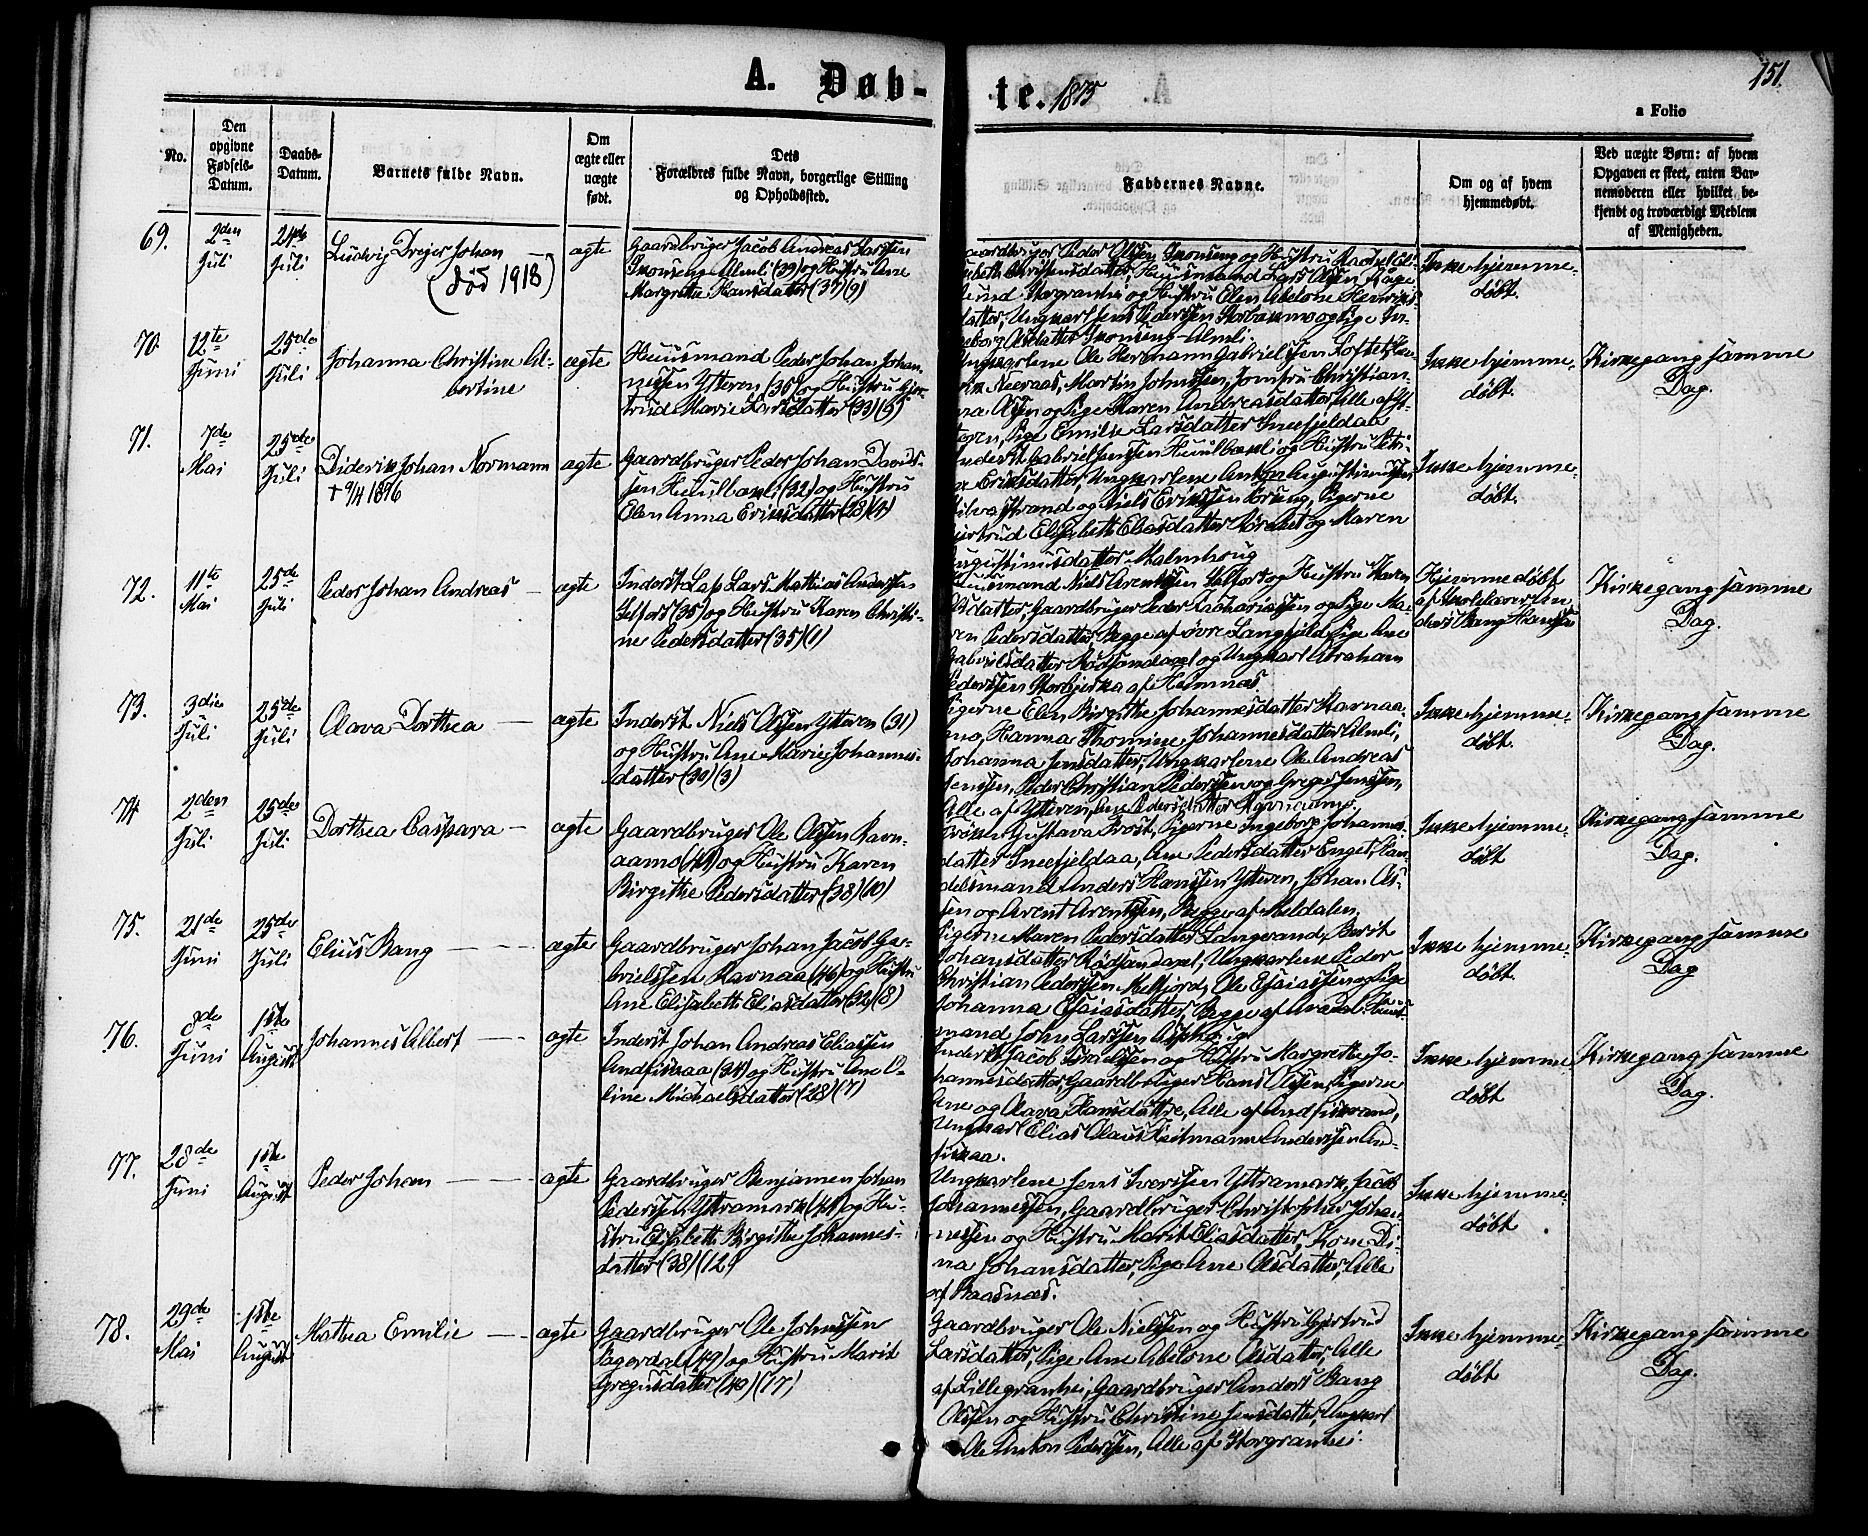 A. Døb-
te. 1875
151.
a Folio
No.
Den opgivne Fødsels-Datum.
Daabs-Datum.
Barnets fulde Navn.
Om ægte eller uægte født.
Dets Forældres fulde Navn, borgerlige Stilling og Opholdssted.
Faddernes Navne.
Om og af hvem hjemmedøbt.
Ved uægte Børn: af hvem Opgaven er skeet, enten Barnemoderen eller hvilket bekjendt og troværdigt Medlem af Menigheden.
69.
2den Juli
24de Juli
Ludvig Dreyer Johan
(død 1918)
ægte
Gaardbruger Jacob Andreas Larssen
Tromseng Almli (39) og Hustru Ane
Margrethe Hansdatter (37) (9)
aardbruger Peder Olsen Tromseng og Hustru Rachel Eli-
sabeth Christensdatter, Huusmand Lars Olsen Aage
lund Storgranhei og Hustru Elen Abelone Henriks
datter, Ungkarl Jens Pedersen Storbakmo og Pige In-
geborg Olsdatter Tromseng Almli
Ikke hjemme-
døbt.
70.
12te Juni
25de Juli
Johanna Christine Al-
bertine
ægte
Huusmand Peder Johan Johan-
nessen Ytteren (35) og Hustru Gjer-
trud Marie Larsdatter (33) (5)
Ungkarlene Ole Hermann Gabrielssen Loftet, Hen-
rik Neeraas, Martin Johnssen, Jomfru Christian-
na Olsen og Pige Karen Andreasdatter, Alle af Yt-
teren, Pige Emilie Larsdatter Sneefjeldaa
Ikke hjemme-
døbt.
Kirkegang samme
Dag.
71.
7de Mai
25de Juli
Diderik Johan Normann
† 9/4 1896
ægte
Gaardbruger Peder Johan Davids-
sen Huulbækli (32) og Hustru
Olen Anna Eriksdatter (28) (4)
Inderst Gabriel Jenssen Huulbækli og Hustru Petri-
ne Eriksdatter, Ungkarlene Anton Augustinussen
Silvastrand og Niels Erikssen Bring, Pigerne
Gjertrud Elisabeth Eliasdatter og Maren
Augustinusdatter Kalmhoug
Ikke hjemme-
døbt.
72.
11te Mai
25de Juli
Peder Johan Andreas
ægte
Inderst Lap Lars Mathias Anderssen
Selfors (35) og Hustru Karen Christi-
ne Pedersdatter (35) (1)
Huusmand Niels Arentsen Selfors og Hustru Karen
Olsdatter, Gaardbruger Peder Zachariassen og Pige Ma-
ren Pedersdatter Begge af øvre Langfjeld, Pige Ane
Gabrielsdatter Rødsandaxel og Ungkarl Abraham
Pederssen Storbjerka af Hemnæs.
Hjemmedøbt
af Skolelærer An-
ders Bang Hanssen
Kirkegang samme
Dag.
73.
3die Juli
25de Juli
Olava Dorthea
ægte
Inderst Niels Olsen Ytteren (31)
og Hustru Ane Marie Johannes-
datter (30) (3)
Pigerne Elen Birgithe Johannesdatter Ravnaa-
mo, Hanna Thomine Johannesdatter Almli,
Johanna Jensdatter, Ungkarlene Ole Andreas
Jenssen, Peder Christian Pederssen og Greger Jenssen,
Alle af Ytteren, Ane Pedersdatter Ravnaamo.
Ikke hjemme-
døbt.
Kirkegang samme
Dag.
74
2den Juli
25de Juli
Dorthea Caspara
ægte
Gaardbruger Ole Olssen Ravn-
aamo (41) og Hustru Karen
Birgithe Pedersdatter (38) (10)
Frøken Gustava Frost, Pigerne Ingeborg Johannes-
datter Sneefjeldaa, Ane Pedersdatter Enget, Han-
delsmand Anders Hanssen Ytteren, Johan Ols-
sen og Arent Arentssen, Begge af Skeldalen.
Ikke hjemme-
døbt
Kirkegang samme
Dag.
75.
21de Juni
25de Juli
Elius Bang
ægte
Gaardbruger Johan Jacob Ga-
brielssen Ravnaa (46) og Hustru
Ane Elisabeth Eliasdatter (32) (8)
Pigerne Maren Pedersdatter Langvand, Berit
Johansdatter Rødsandaxel, Ungkarlene Peder
Christian Pederssen Melfjord, Ole Esaiassen og Pige
Johanna Esaiasdatter, Begge af Avadal, Huus-
mand John Larssen Asphoug
Ikke hjemme-
døbt
Kirkegang samme
Dag
76.
8de Juni
1ste August
Johannes Albert
ægte
Inderst Johan Andreas Eliassen
Andfiskaa (34) og Hustru Ane O-
line Michaelsdatter (28) (7)
Inderst Jacob Israelssen og Hustru Margrethe Jo-
hannesdatter, Gaardbruger Hans Olssen, Pigerne
Ane og Olava Hansdattre, Alle af Andfiskvand,
Ungkarl Elias Olaus Heitmann Anderssen And-
fiskaa.
Ikke hjemme-
døbt
Kirkegang samme
Dag.
77.
28de Juni
1ste August
Peder Johan
ægte
Gaardbruger Benjamen Johan
Pederssen Yttramark (41) og Hu-
stru Elisabeth Birgitte Johannes-
datter (38) (12)
Ungkarlene Jens Iverssen Yttramark, Jacob
Johannessen, Gaardbruger Christopher Johan-
nessen og Hustru Marit Eliasdatter, Kone Di-
na Johansdatter, Pige Ane Olsdatter, Alle
af Baasnæs.
Ikke hjemme-
døbt
78.
29de Mai
1ste August
Mathea Emilie
ægte
Gaardbruger Ole Johnssen
Bagerdal (49) og Hustru Marit
Gregusdatter (40) (17)
Gaardbruger Ole Nielssen og Hustru Gjertrud
Larsdatter, Pige Ane Abelone Olsdatter, Alle
af Lillegranhei, Gaardbruger Anders Bang
Olssen og Hustru Christine Jensdatter, Ungkarl
Ole Anton Pederssen, Alle af Storgranhei.
Ikke hjemme-
døbt
Kirkegang samme
Dag.